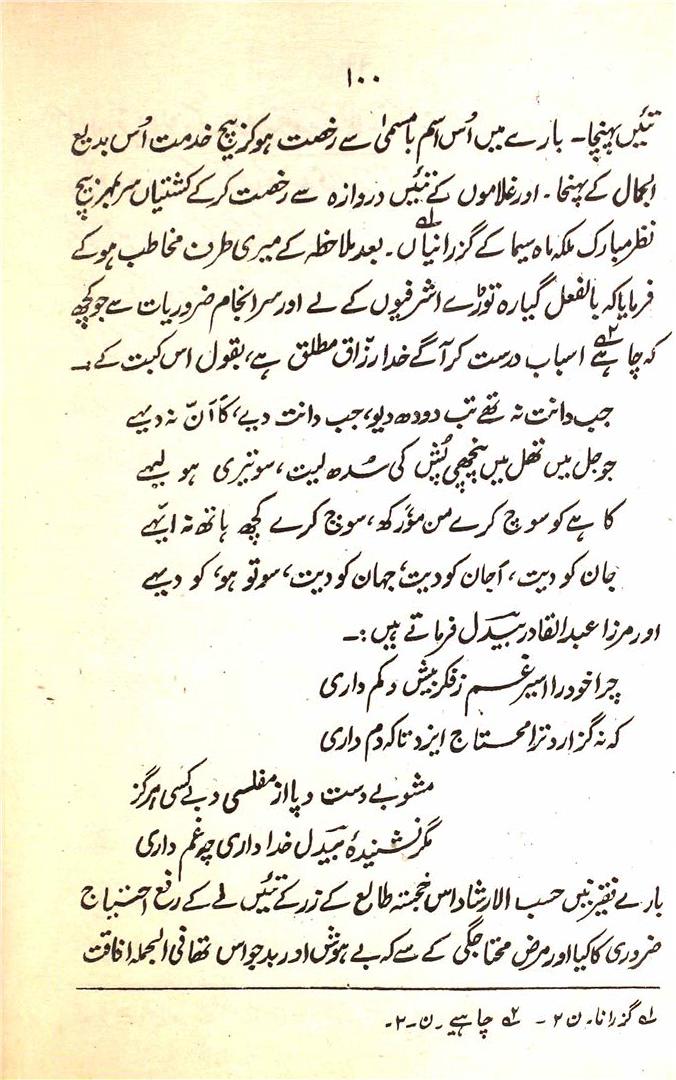 ۱۰۰
تئیں پہنچا۔ بارے میں اُس اسم بامسمیٰ سے رخصت ہو کر بیچ خدمت اُس بدیع
الجمال کے پہنچا۔ اور غلاموں کے تئیں دروازہ سے رخصت کر کے کشتیاں سر بمہر بیچ
نظر مبارک ملکہ ماہ سیما کے گزرانیاں۱؎۔ بعد ملاحظہ کے میری طرف مخاطب ہو کے
فرمایا کہ بالفعل گیارہ توڑے اشرفیوں کے لے اور سر انجام ضروریات سے جو کچھ
کہ چاہئے۲؎ اسباب درست کر آگے خدا رزّاق مطلق ہے، بقول اس کبت کے :۔
جب دانت نہ تھے تب دودھ دیو، جب دانت دیے، کا اَنّ نہ دیہے
جو جل میں تھل میں پنچھی پُش کی سُدھ لیت، سو تیری ہو لیہے
کاہے کو سوچ کرے من مورکھ، سوچ کرے کچھ ہاتھ نہ ایہے
جان کو دیت، اَجان کو دیت، جہان کو دیت، سو تو ہو، کو دیہے
اور مرزا عبدالقادر بیدل فرماتے ہیں :۔
چرا خود را اسیر غم ز فکر بیش و کم داری
کہ نہ گزارد ترا محتاج ایزد تا کہ دم داری
مشو بے دست و پا از مفلسی و بے کسی ہرگز
مگر نشنیدۂ بیدل خدا داری چہ غم داری
بارے فقیر نیں حسب الارشاد اس خجستہ طالع کے زر کے تئیں لے کے رفع احتیاج
ضروری کا کیا اور مرض محتاجگی کے سے کہ بے ہوش اور بدحواس تھا فی الجملہ افاقت
۱؎ گزرانا۔ ن ۲ ۔ ۲؎ چاہیے ۔ ن ۔ ۲ ۔